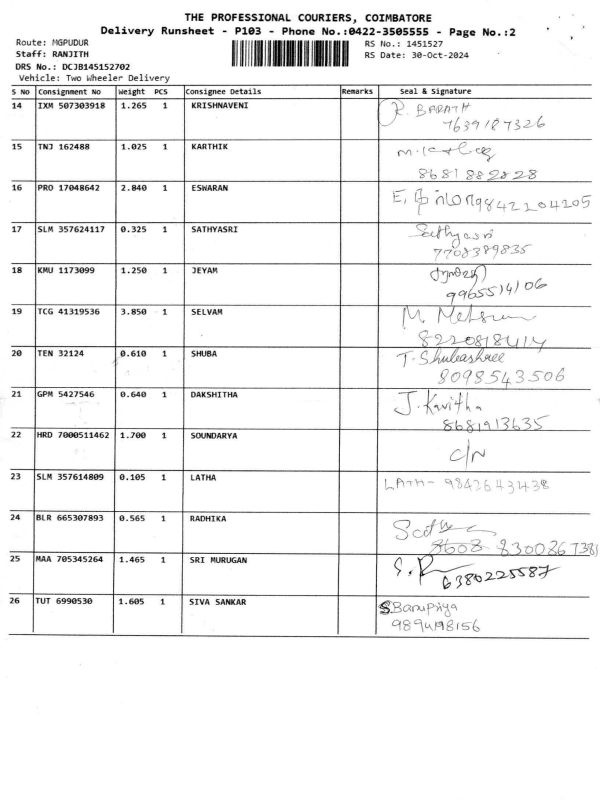 THE PROFESSIONAL COURIERS, COIMBATORE
Delivery Runsheet - P103 - Phone No.:0422-3505555 - Page No.:2
Route: MGPUDUR
RS No.: 1451527
Staff: RANJITH
RS Date: 30-Oct-2024
DRS No.: DCJB145152702
Vehicle: Two Wheeler Delivery
S No Consignment No Weight PCS Consignee Details Remarks Seal & Signature
14 IXM 507303918 1.265 1 KRISHNAVENI R. BARATH
7639187326
15 TNJ 162488 1.025 1 KARTHIK
8681882828
16 PRO 17048642 2.840 1 ESWARAN 9842204205
17 SLM 357624117 0.325 1 SATHYASRI Sathyasri
7708389835
18 KMU 1173099 1.250 1 JEYAM
9965514106
19 TCG 41319536 3.850 1 SELVAM M.
8220818414
20 TEN 32124 0.610 1 SHUBA T. Shubashree
8098543506
21 GPM 5427546 0.640 1 DAKSHITHA J. Kavitha
8681913635
22 HRD 7000511462 1.700 1 SOUNDARYA C/N
23 SLM 357614809 0.105 1 LATHA LATH- 9842643438
24 BLR 665307893 0.565 1 RADHIKA
8608 8300867381
25 MAA 705345264 1.465 1 SRI MURUGAN
6380225587
26 TUT 6990530 1.605 1 SIVA SANKAR S Banupriya
9894198156